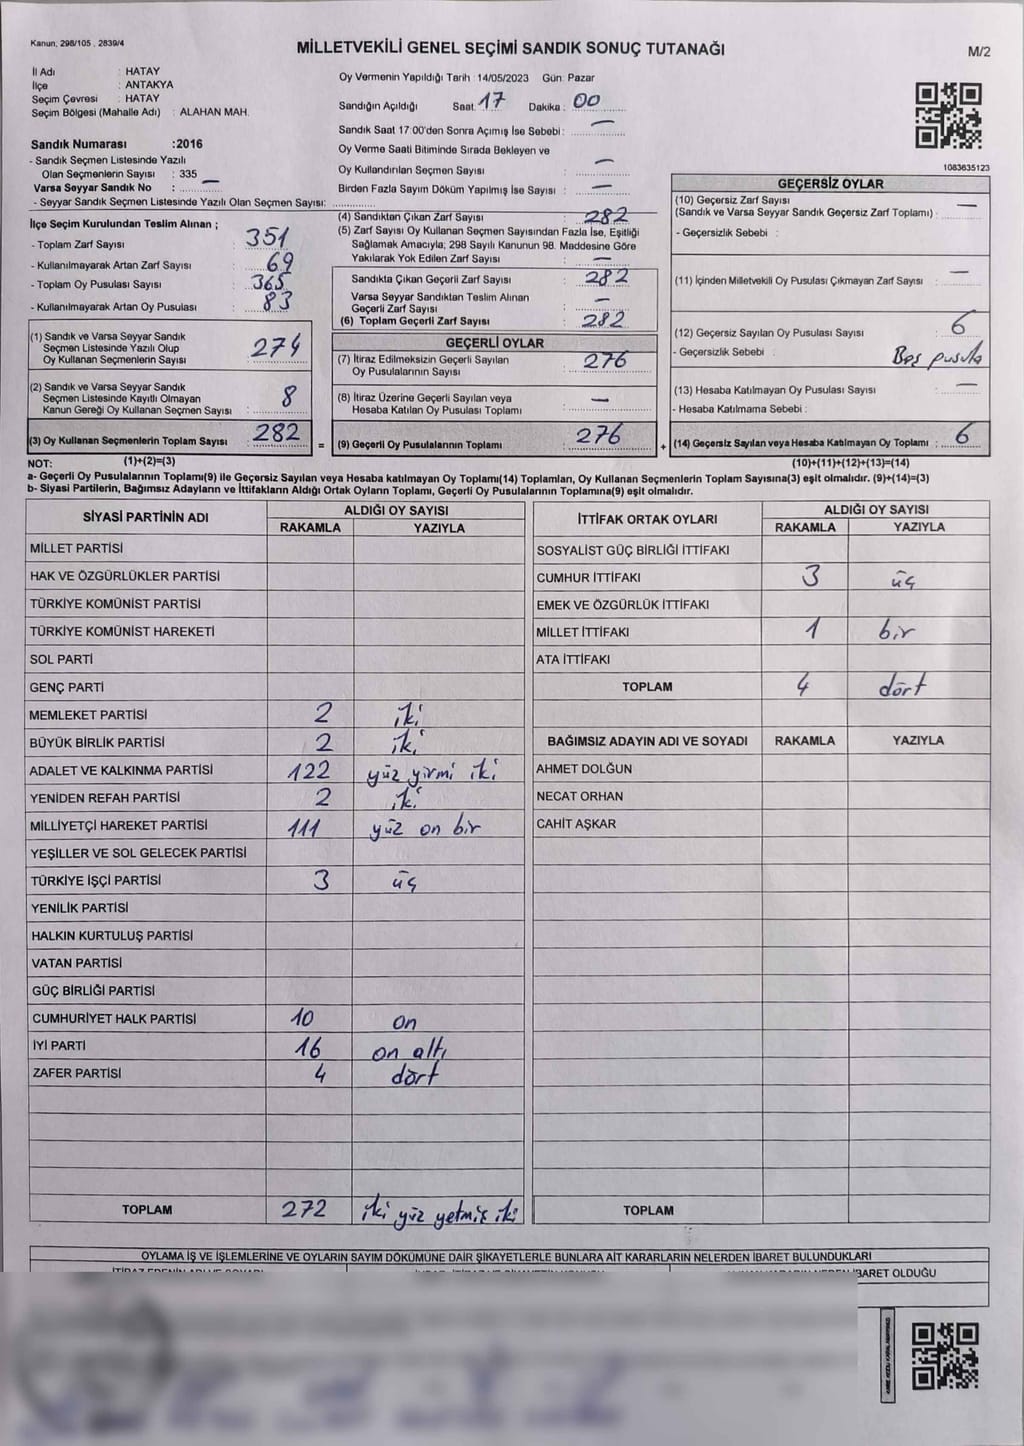 Kanun; 298/105 , 2839/4
MİLLETVEKİLİ GENEL SEÇİMİ SANDIK SONUÇ TUTANAĞI
M/2
İl Adı : HATAY
İlçe : ANTAKYA
Seçim Çevresi : HATAY
Seçim Bölgesi (Mahalle Adı) : ALAHAN MAH.
Sandık Numarası :2016
- Sandık Seçmen Listesinde Yazılı
Olan Seçmenlerin Sayısı : 335
Varsa Seyyar Sandık No : —
- Seyyar Sandık Seçmen Listesinde Yazılı Olan Seçmen Sayısı:
Oy Vermenin Yapıldığı Tarih : 14/05/2023 Gün: Pazar
Sandığın Açıldığı Saat: 17 Dakika : 00
Sandık Saat 17 00'den Sonra Açımış İse Sebebi : —
Oy Verme Saati Bitiminde Sırada Bekleyen ve
Oy Kullandırılan Seçmen Sayısı : —
Birden Fazla Sayım Döküm Yapılmış İse Sayısı : —
1083635123
İlçe Seçim Kurulundan Teslim Alınan ;
- Toplam Zarf Sayısı : 351
- Kullanılmayarak Artan Zarf Sayısı : 69
- Toplam Oy Pusulası Sayısı : 365
- Kullanılmayarak Artan Oy Pusulası : 83
(1) Sandık ve Varsa Seyyar Sandık
Seçmen Listesinde Yazılı Olup
Oy Kullanan Seçmenlerin Sayısı : 274
(2) Sandık ve Varsa Seyyar Sandık
Seçmen Listesinde Kayıtlı Olmayan
Kanun Gereği Oy Kullanan Seçmen Sayısı : 8
(3) Oy Kullanan Seçmenlerin Toplam Sayısı : 282 =
(4) Sandıktan Çıkan Zarf Sayısı : 282
(5) Zarf Sayısı Oy Kullanan Seçmen Sayısından Fazla İse, Eşitliği
Sağlamak Amacıyla; 298 Sayılı Kanunun 98. Maddesine Göre
Yakılarak Yok Edilen Zarf Sayısı : —
Sandıkta Çıkan Geçerli Zarf Sayısı : 282
Varsa Seyyar Sandıktan Teslim Alınan
Geçerli Zarf Sayısı : —
(6) Toplam Geçerli Zarf Sayısı : 282
GEÇERLİ OYLAR
(7) İtiraz Edilmeksizin Geçerli Sayılan
Oy Pusulalarının Sayısı : 276
(8) İtiraz Üzerine Geçerli Sayılan veya
Hesaba Katılan Oy Pusulası Toplamı : —
(9) Geçerli Oy Pusulalarının Toplamı : 276 +
GEÇERSİZ OYLAR
(10) Geçersiz Zarf Sayısı
(Sandık ve Varsa Seyyar Sandık Geçersiz Zarf Toplamı) : —
- Geçersizlik Sebebi :
(11) İçinden Milletvekili Oy Pusulası Çıkmayan Zarf Sayısı : —
(12) Geçersiz Sayılan Oy Pusulası Sayısı : 6
- Geçersizlik Sebebi : Boş pusula
(13) Hesaba Katılmayan Oy Pusulası Sayısı : —
- Hesaba Katılmama Sebebi :
(14) Geçersiz Sayılan veya Hesaba Katılmayan Oy Toplamı : 6
NOT: (1)+(2)=(3) (10)+(11)+(12)+(13)=(14)
a- Geçerli Oy Pusulalarının Toplamı(9) ile Geçersiz Sayılan veya Hesaba katılmayan Oy Toplamı(14) Toplamları, Oy Kullanan Seçmenlerin Toplam Sayısına(3) eşit olmalıdır. (9)+(14)=(3)
b- Siyasi Partilerin, Bağımsız Adayların ve İttifakların Aldığı Ortak Oyların Toplamı, Geçerli Oy Pusulalarının Toplamına(9) eşit olmalıdır.
SİYASİ PARTİNİN ADI ALDIĞI OY SAYISI
RAKAMLA YAZIYLA
MİLLET PARTİSİ
HAK VE ÖZGÜRLÜKLER PARTİSİ
TÜRKİYE KOMÜNİST PARTİSİ
TÜRKİYE KOMÜNİST HAREKETİ
SOL PARTİ
GENÇ PARTİ
MEMLEKET PARTİSİ 2 iki
BÜYÜK BİRLİK PARTİSİ 2 iki
ADALET VE KALKINMA PARTİSİ 122 yüz yirmi iki
YENİDEN REFAH PARTİSİ 2 iki
MİLLİYETÇİ HAREKET PARTİSİ 111 yüz on bir
YEŞİLLER VE SOL GELECEK PARTİSİ
TÜRKİYE İŞÇİ PARTİSİ 3 üç
YENİLİK PARTİSİ
HALKIN KURTULUŞ PARTİSİ
VATAN PARTİSİ
GÜÇ BİRLİĞİ PARTİSİ
CUMHURİYET HALK PARTİSİ 10 on
İYİ PARTİ 16 on altı
ZAFER PARTİSİ 4 dört
TOPLAM 272 iki yüz yetmiş iki
İTTİFAK ORTAK OYLARI ALDIĞI OY SAYISI
RAKAMLA YAZIYLA
SOSYALİST GÜÇ BİRLİĞİ İTTİFAKI
CUMHUR İTTİFAKI 3 üç
EMEK VE ÖZGÜRLÜK İTTİFAKI
MİLLET İTTİFAKI 1 bir
ATA İTTİFAKI
TOPLAM 4 dört
BAĞIMSIZ ADAYIN ADI VE SOYADI RAKAMLA YAZIYLA
AHMET DOLĞUN
NECAT ORHAN
CAHİT AŞKAR
TOPLAM
OYLAMA İŞ VE İŞLEMLERİNE VE OYLARIN SAYIM DÖKÜMÜNE DAİR ŞİKAYETLERLE BUNLARA AİT KARARLARIN NELERDEN İBARET BULUNDUKLARI
İBARET OLDUĞU